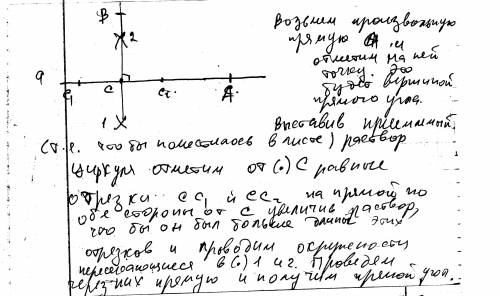 В
2
а
C₁ C C₂ А
1
Возьмем произвольную
прямую а и
отметим на ней
точку. Это
будет вершиной
прямого угла.
Выставив приемлемый
(т.е. что бы поместилось в листе) раствор
циркуля отметим от (.) С равные
отрезки CC₁ и CC₂ на прямой по
обе стороны от С увеличив раствор,
что бы он был больше длины этих
отрезков и проводим окружности
пересекающиеся в (.) 1 и 2. Проведем
через них прямую и получим прямой угол.